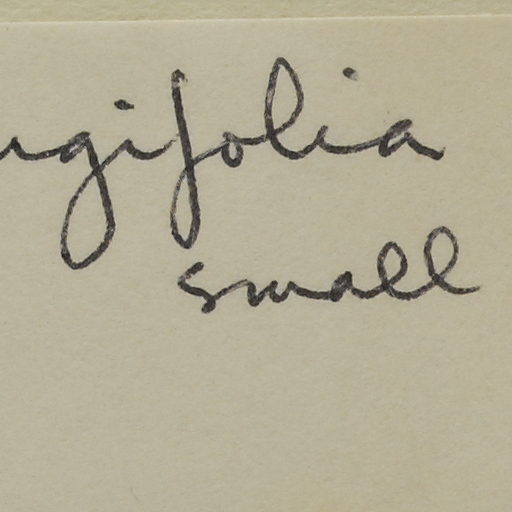 ugifolia
small